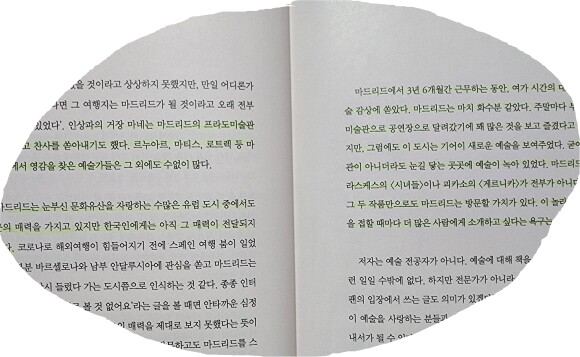 것이라고 상상하지 못했지만, 만일 어디론가
다면 그 여행지는 마드리드가 될 것이라고 오래 전부
있었다'. 인상파의 거장 마네는 마드리드의 프라도미술관
고 찬사를 쏟아내기도 했다. 르누아르, 마티스, 로트렉 등 마
에서 영감을 찾은 예술가들은 그 외에도 수없이 많다.
마드리드는 눈부신 문화유산을 자랑하는 수많은 유럽 도시 중에서도
의 매력을 가지고 있지만 한국인에게는 아직 그 매력이 전달되지
코로나로 해외여행이 힘들어지기 전에 스페인 여행 붐이 일었
분 바르셀로나와 남부 안달루시아에 관심을 쏟고 마드리드는
시 들렀다 가는 도시쯤으로 인식하는 것 같다. 종종 인터
볼 것 없어요'라는 글을 볼 때면 안타까운 심정
의 매력을 제대로 보지 못했다는 뜻이
마드리드를 스
마드리드에서 3년 6개월간 근무하는 동안, 여가 시간의
술 감상에 쏟았다. 마드리드는 마치 화수분 같았다. 주말마다
미술관으로 공연장으로 달려갔기에 꽤 많은 것을 보고 즐겼다고
지만, 그럼에도 이 도시는 기어이 새로운 예술을 보여주었다. 굳이
관이 아니더라도 눈길 닿는 곳곳에 예술이 녹아 있었다. 마드리드
라스케스의 〈시녀들〉이나 피카소의 〈게르니카〉가 전부가 아니다
그 두 작품만으로도 마드리드는 방문할 가치가 있다. 이 놀라
을 접할 때마다 더 많은 사람에게 소개하고 싶다는 욕구는
저자는 예술 전공자가 아니다. 예술에 대해 책을
련 일일 수밖에 없다. 하지만 전문가가 아니라
팬의 입장에서 쓰는 글도 의미가 있겠다
이 예술을 사랑하는 분들과
내서가 될 수 있